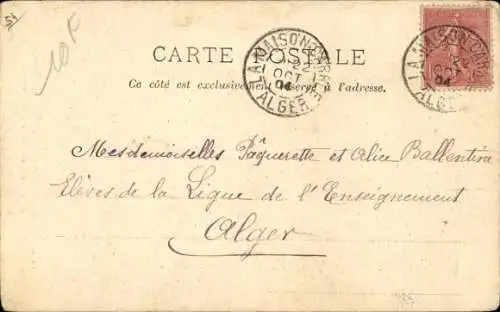 54
10F
CARTE POSTALE
Ce côté est exclusivement réservé à l'adresse.
LA MAISON-CARRÉE
OCT
04
ALGER
LA MAISON-CARRÉE
04
ALGER
Mesdemoiselles Pâquerette et Alice Ballentina
Elèves de la Ligue de l'Enseignement
Alger